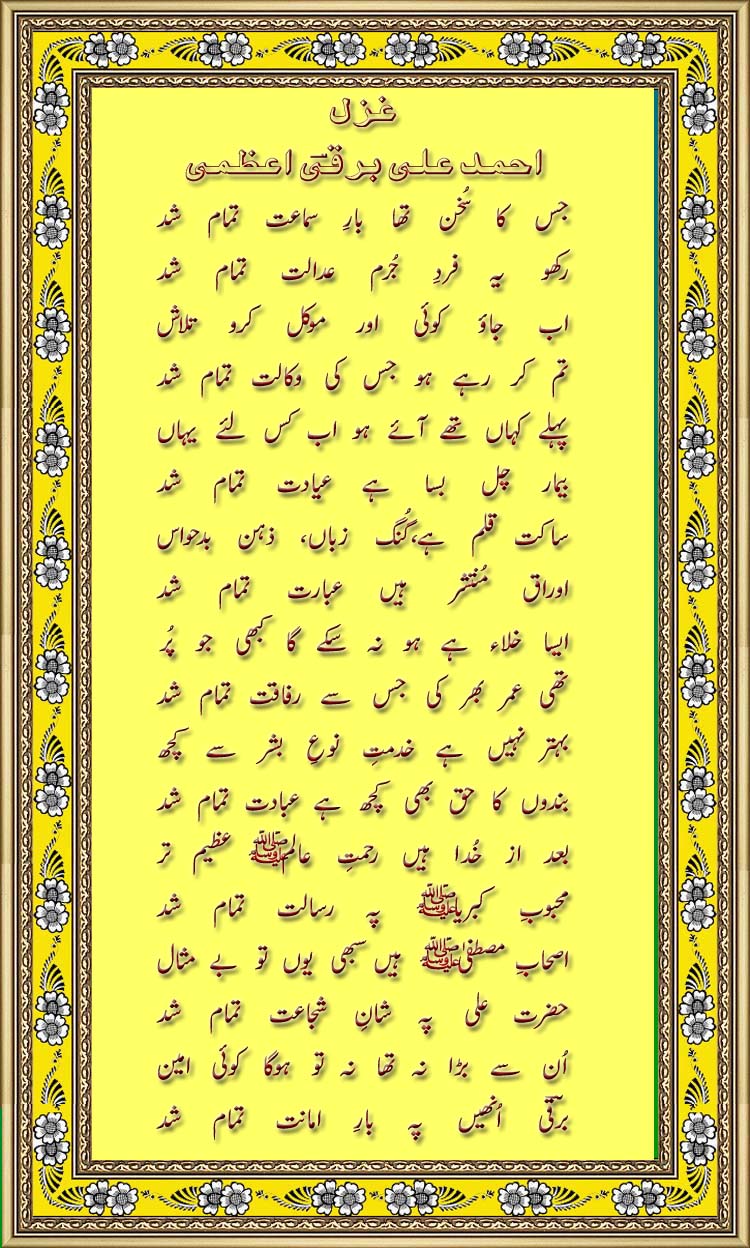 غزل
احمد علی برقیؔ اعظمی
جس کا سُخن تھا بارِ سماعت تمام شد
رکھو یہ فردِ جُرم عدالت تمام شد
اب جاؤ کوئی اور موکل کرو تلاش
تم کر رہے ہو جس کی وکالت تمام شد
پہلے کہاں تھے آئے ہو اب کس لئے یہاں
بیمار چل بسا ہے عیادت تمام شد
ساکت قلم ہے،گُنگ زباں، ذہن بدحواس
اوراق مُنتشر ہیں عبارت تمام شد
ایسا خلاء ہے ہو نہ سکے گا کبھی جو پُر
تھی عمر بھر کی جس سے رفاقت تمام شد
بہتر نہیں ہے خدمتِ نوعِ بشر سے کچھ
بندوں کا حق بھی کچھ ہے عبادت تمام شد
بعد از خُدا ہیں رحمتِ عالمﷺ عظیم تر
محبوبِ کبریاﷺ پہ رسالت تمام شد
اصحابِ مصطفیٰﷺ ہیں سبھی یوں تو بے مثال
حضرت علی پہ شانِ شجاعت تمام شد
اُن سے بڑا نہ تھا نہ تو ہوگا کوئی امین
برقیؔ اُنھیں پہ بارِ امانت تمام شد